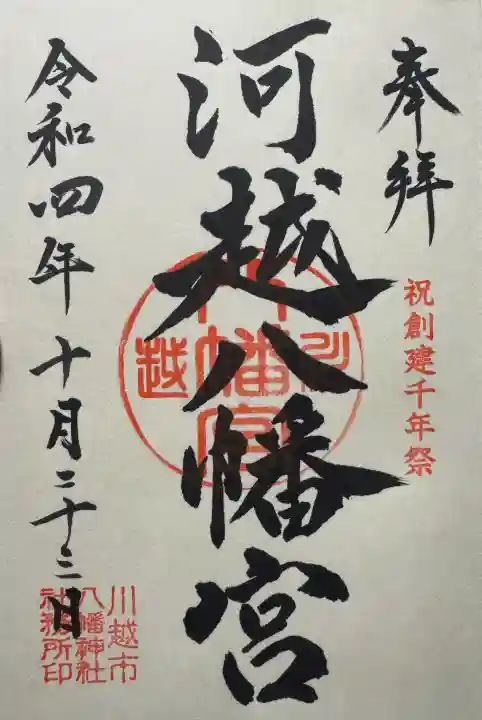 奉拝
祝創建千年祭
河越八幡宮
川
八幡宮
越
令和四年十月二十三日
川越市
八幡神社
社務所印